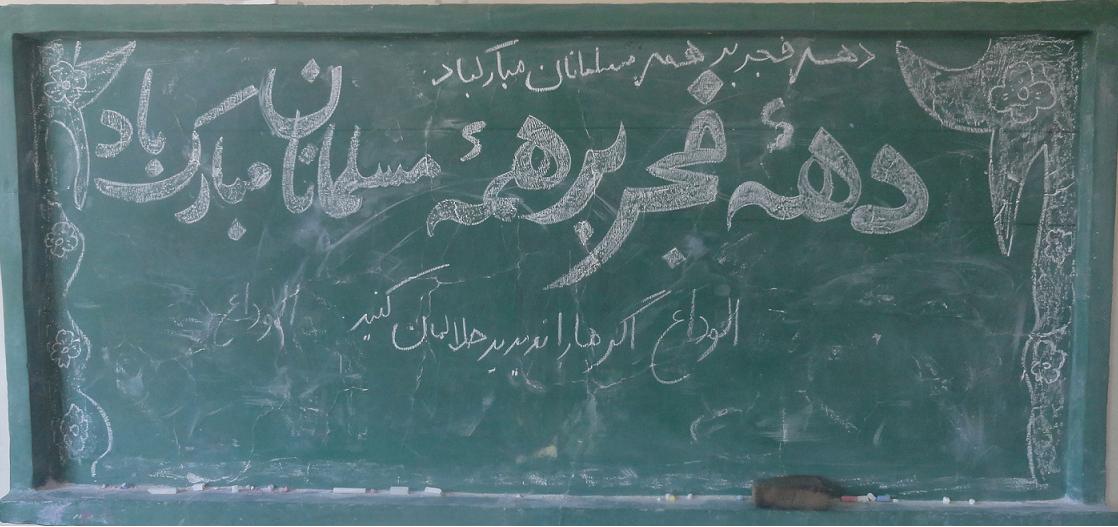 دهه فجر بر همه مسلمانان مبارکباد
دههٔ فجر بر همهٔ مسلمانان مبارک باد
الوداع اگر ما را ندیدید حلالمان کنید الوداع